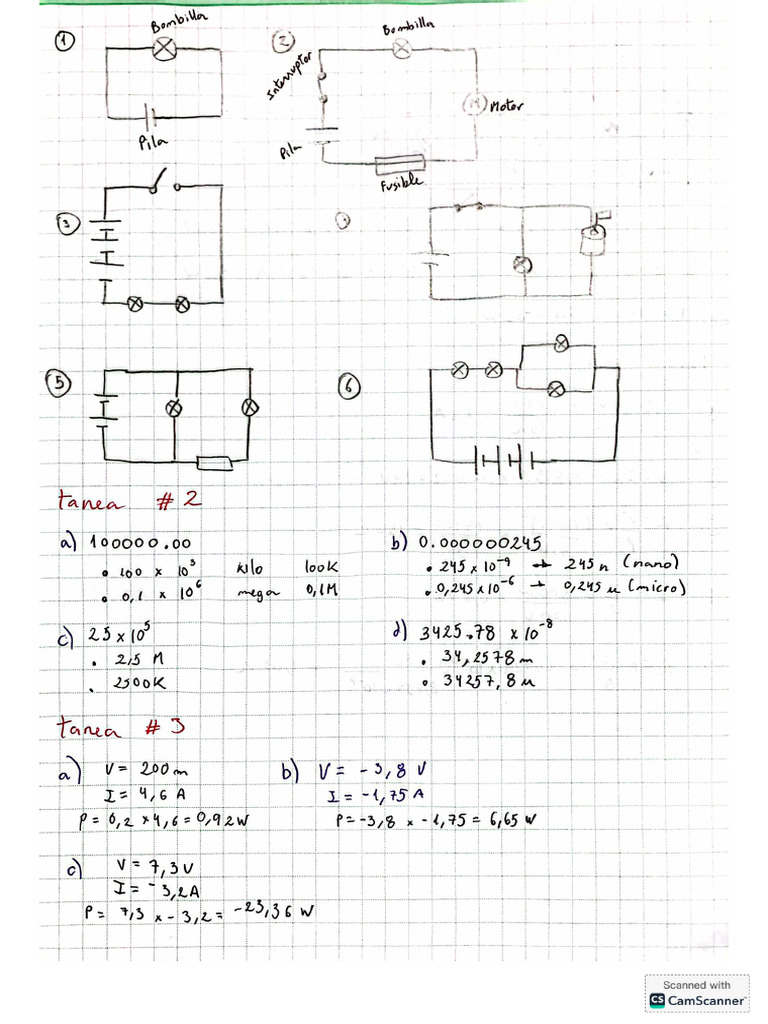 1
Bombilla
Pila
2
Bombilla
Interruptor
M Motor
Pila
Fusible
3
5
6
tarea # 2
a) 100000.00
• 100 x 10³ kilo 100K
• 0,1 x 10⁶ mega 0,1M
b) 0.000000245
• 245 x 10⁻⁹ → 245 n (nano)
• 0,245 x 10⁻⁶ → 0,245 u (micro)
c) 25 x 10⁵
• 2,5 M
• 2500K
d) 3425.78 x 10⁻⁸
• 34,2578 m
• 34257,8 u
tarea # 3
a) V = 200 m
I = 4,6 A
P = 0,2 x 4,6 = 0,92 W
b) V = -3,8 V
I = -1,75 A
P = -3,8 x -1,75 = 6,65 W
c) V = 7,3 V
I = -3,2 A
P = 7,3 x -3,2 = -23,36 W
Scanned with
CS CamScanner